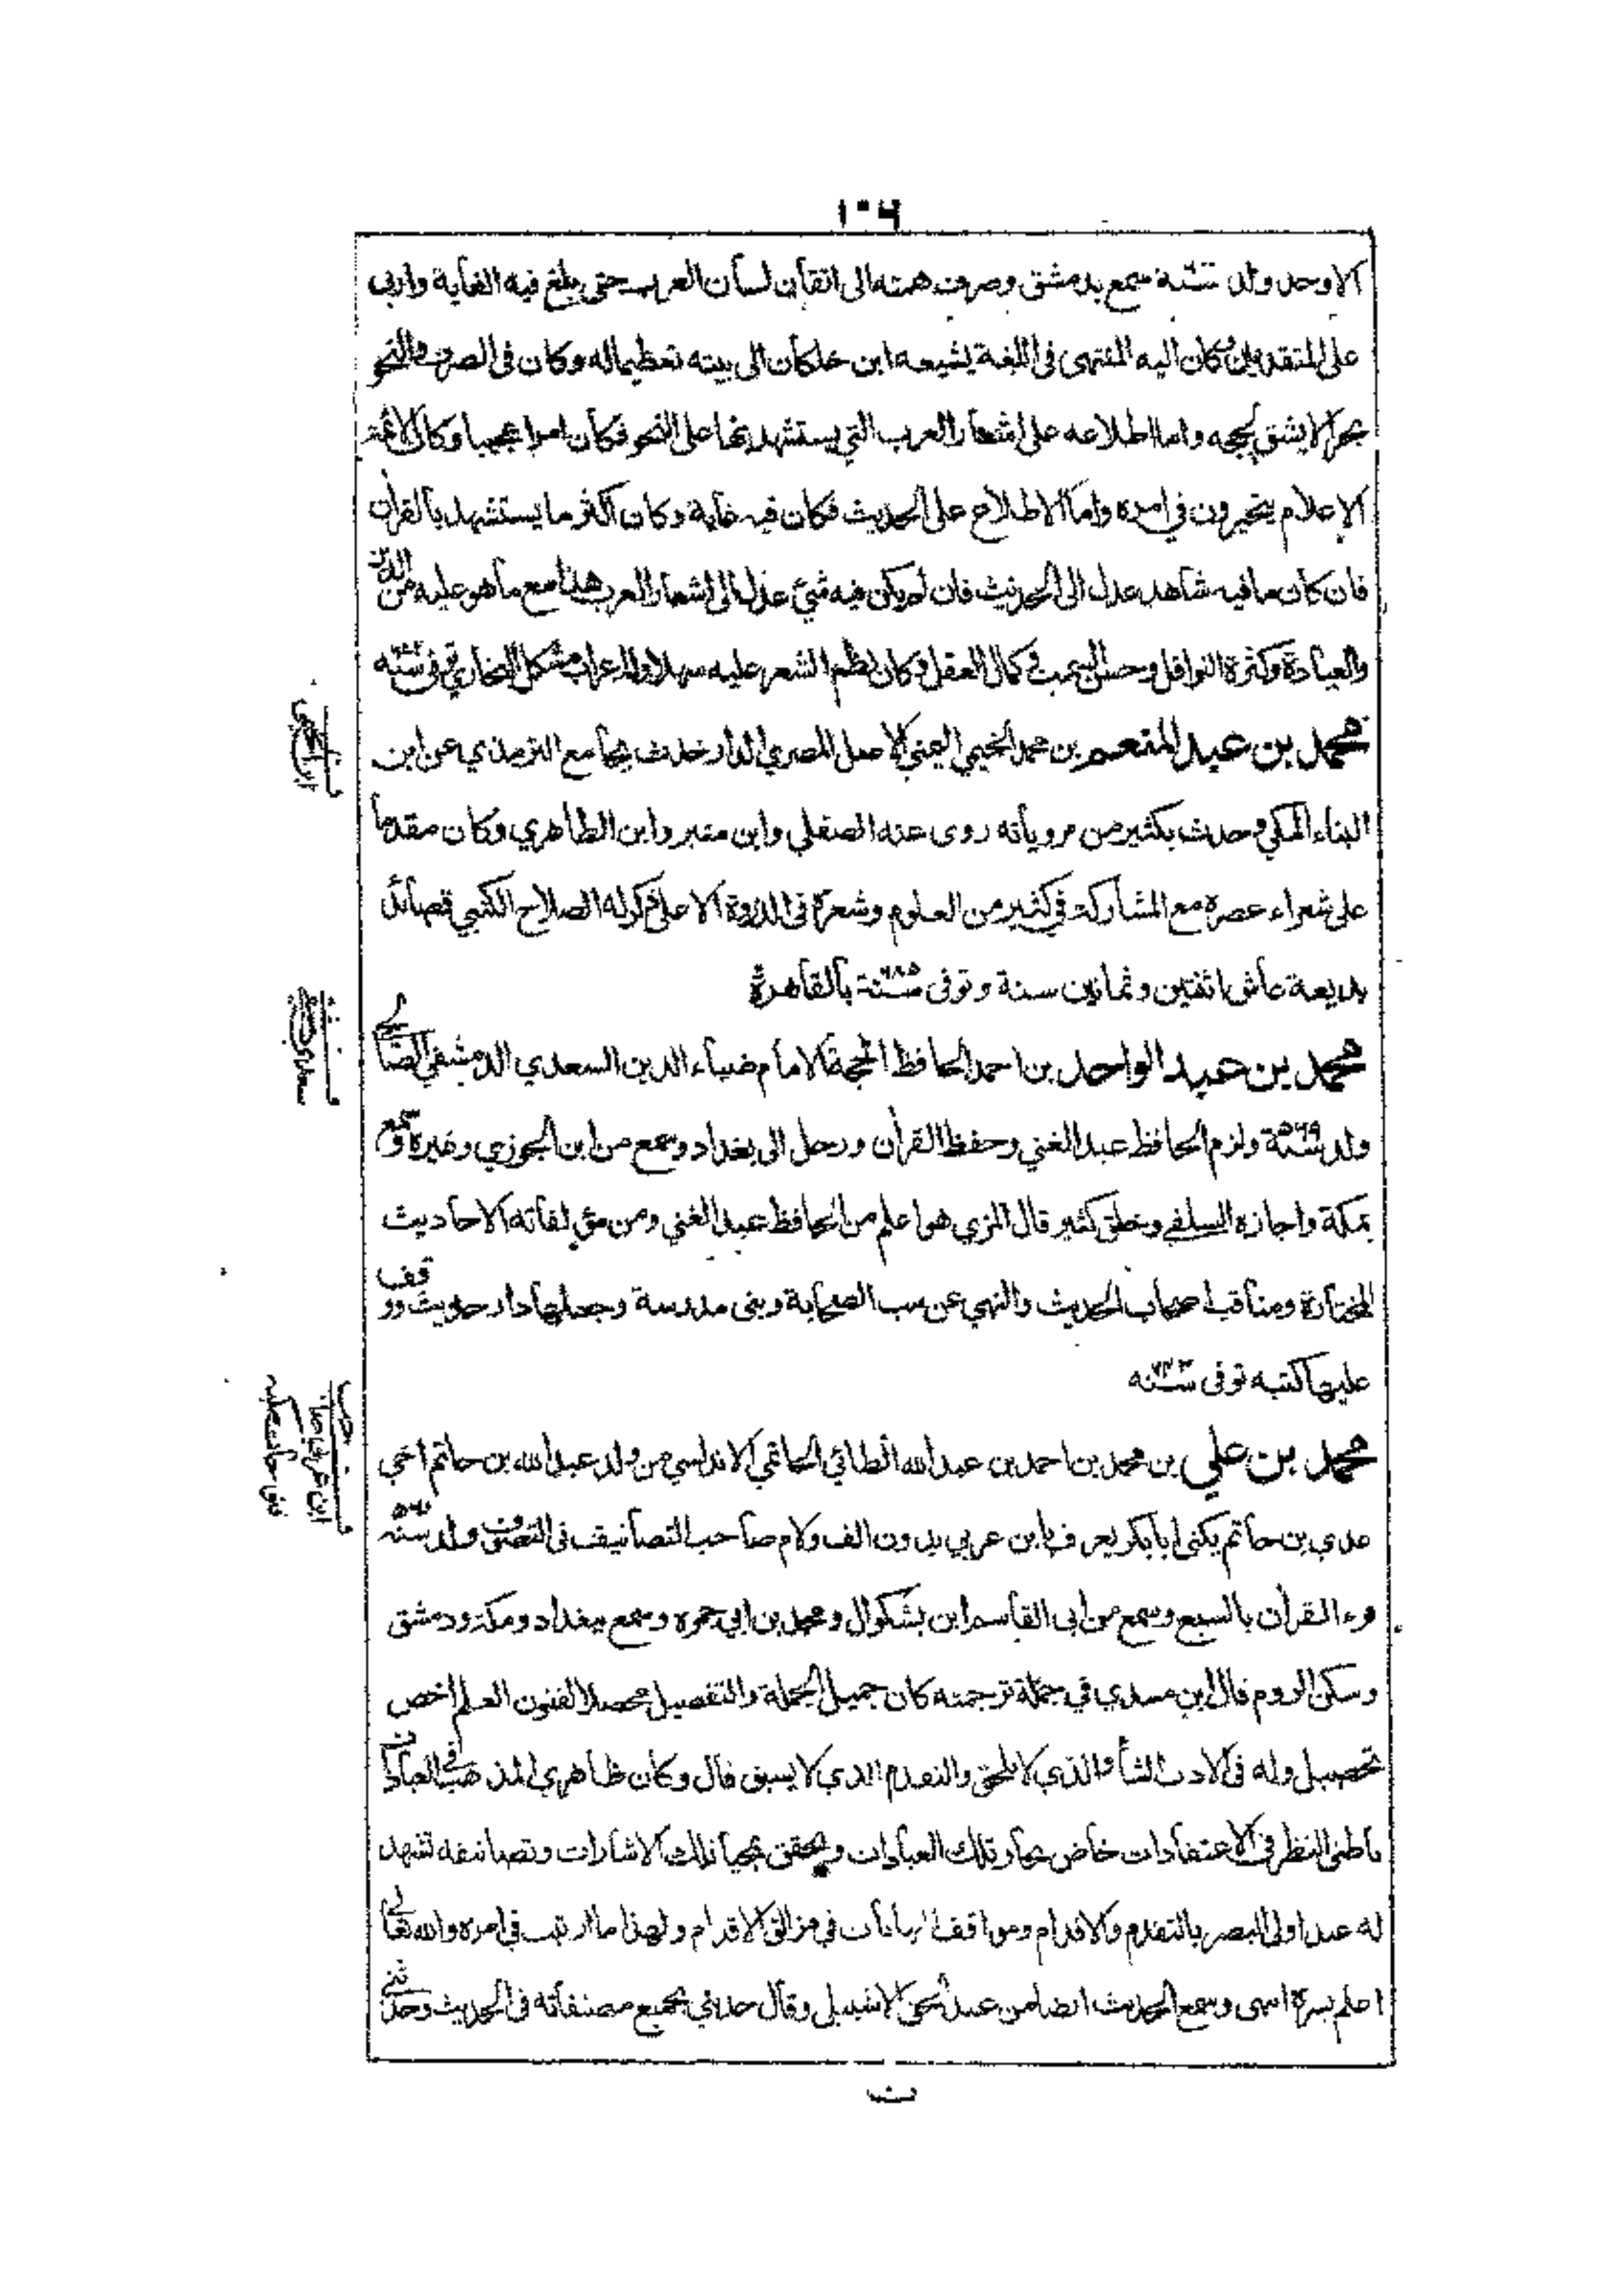 ١٠٦
الاوحد ولد سنة سمع بدمشق وصرف همته الى اتقان لسان العرب حتى بلغ فيه الغاية واربى
على المتقدمين كان اليه المنتهى فى اللغة يشيعه ابن خلكان الى بيته تعظيما له وكان فى الصرف والنحو
بحرا لا يشق لججه واما اطلاعه على اشعار العرب التي يستشهد بها على النحو فكان امرا عجيبا وكان الائمة
الاعلام يتحيرون في امره واما الاطلاع على الحديث فكان فيه غاية وكان اكثر ما يستشهد بالقرآن
فان كان ما فيه شاهد عدل الى الحديث فان لم يكن فيه شئ عدل الى اشعار العرب هذا مع ما هو عليه من الدين
والعبادة وكثرة النوافل وحسن السمت وكمال العقل وكان نظم الشعر عليه سهلا وله اعراب مشكل البخاري توفى سنة
محمد بن عبد المنعم بن محمد الخيمي اليمني الاصل المصري الدار حدث بجامع الترمذي عن ابن
البناء المكي وحدث بكثير من مروياته روى عنه الصقلي وابن منير وابن الظاهري وكان مقدما
على شعراء عصره مع المشاركة في كثير من العلوم وشعره فى الذروة الاعلى ذكر له الصلاح الكتبي قصائد
بديعة عاش اثنتين وثمانين سنة وتوفى سنة ٦٨٥ بالقاهرة
محمد بن عبد الواحد بن احمد الحافظ الحجة الامام ضياء الدين السعدي الدمشقي الصالحي
ولد سنة ٥٦٩ ولزم الحافظ عبد الغني وحفظ القرآن ورحل الى بغداد وسمع من ابن الجوزي وغيره وسمع
بمكة واجازه السلفي وخلق كثير قال المزي هو اعلم من الحافظ عبد الغني ومن مؤلفاته الاحاديث
المختارة ومناقب اصحاب الحديث والنهي عن سب الصحابة وبنى مدرسة وجعلها دار حديث ووقف
عليها كتبه توفى سنة
محمد بن علي بن محمد بن احمد بن عبد الله الطائي الحاتمي الاندلسي من ولد عبد الله بن حاتم اخي
عدي بن حاتم يكنى ابا بكر يعرف بابن عربي بدون الف ولام صاحب التصانيف فى التصوف ولد سنة ٥٦٠
قرء القرآن بالسبع وسمع من ابى القاسم ابن بشكوال ومحمد بن ابي جمرة وسمع ببغداد ومكة ودمشق
وسكن الروم قال ابن مسدي في جملة ترجمته كان جميل الجملة والتفصيل محصلا لفنون العلم اخص
تحصيل وله فى الادب الشأو الذي لا يلحق والتقدم الذي لا يسبق قال وكان ظاهري المذهب فى العبادات
باطني النظر فى الاعتقادات خاض بحار تلك العبارات وتحقق بمحيا تلك الاشارات وتصانيفه تشهد
له عند اولى البصر بالتقدم والاقدام ومواقف النهايات في مزالق الاقدام ولهذا ما ارتبت في امره والله تعالى
اعلم بسره انتهى وسمع الحديث ايضا من عبد الحق الاشبيلي وقال حدثني بجميع مصنفاته فى الحديث وحدثني